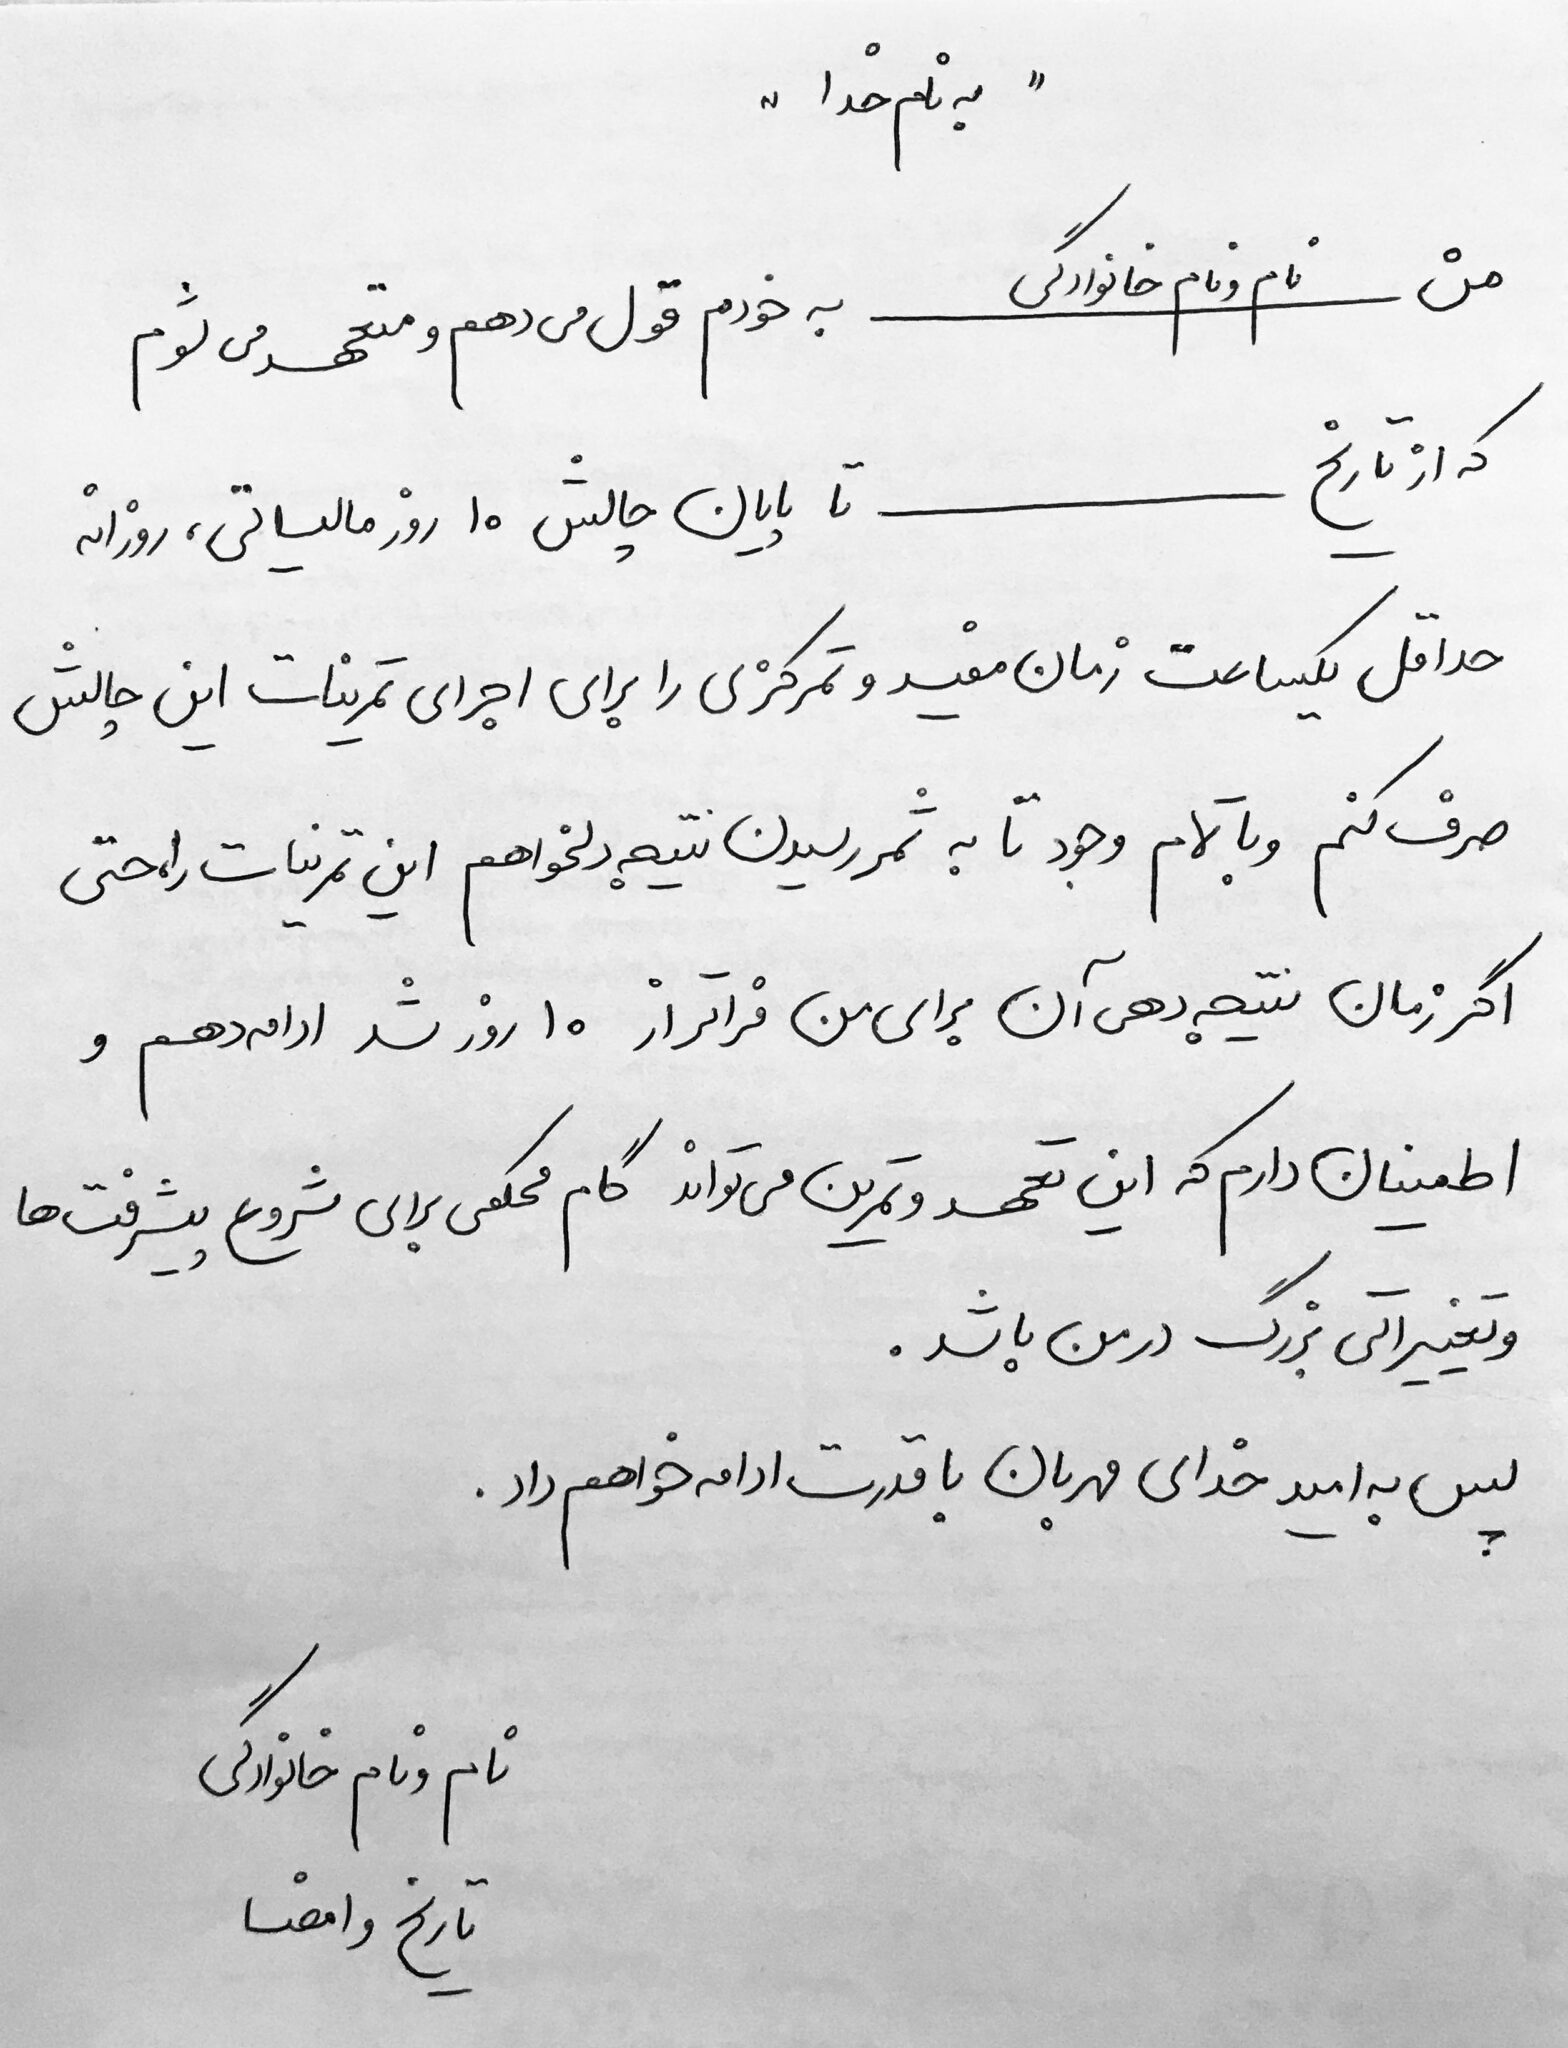 " به نام خدا "
من نام و نام خانوادگی به خودم قول می دهم و متعهد می شوم
که از تاریخ ــــــــــ تا پایان چالش ۱۰ روز مالیساتی، روزانه
حداقل یکساعت زمان مفید و تمرکزی را برای اجرای تمرینات این چالش
صرف کنم و با تمام وجود تا به ثمر رسیدن نتیجه دلخواهم این تمرینات را حتی
اگر زمان نتیجه دهی آن برای من فراتر از ۱۰ روز شد ادامه دهم و
اطمینان دارم که این تعهد و تمرین می تواند گام محکمی برای شروع پیشرفت ها
و تغییراتی بزرگ در من باشد .
پس به امید خدای مهربان با قدرت ادامه خواهم داد .
نام و نام خانوادگی
تاریخ و امضا